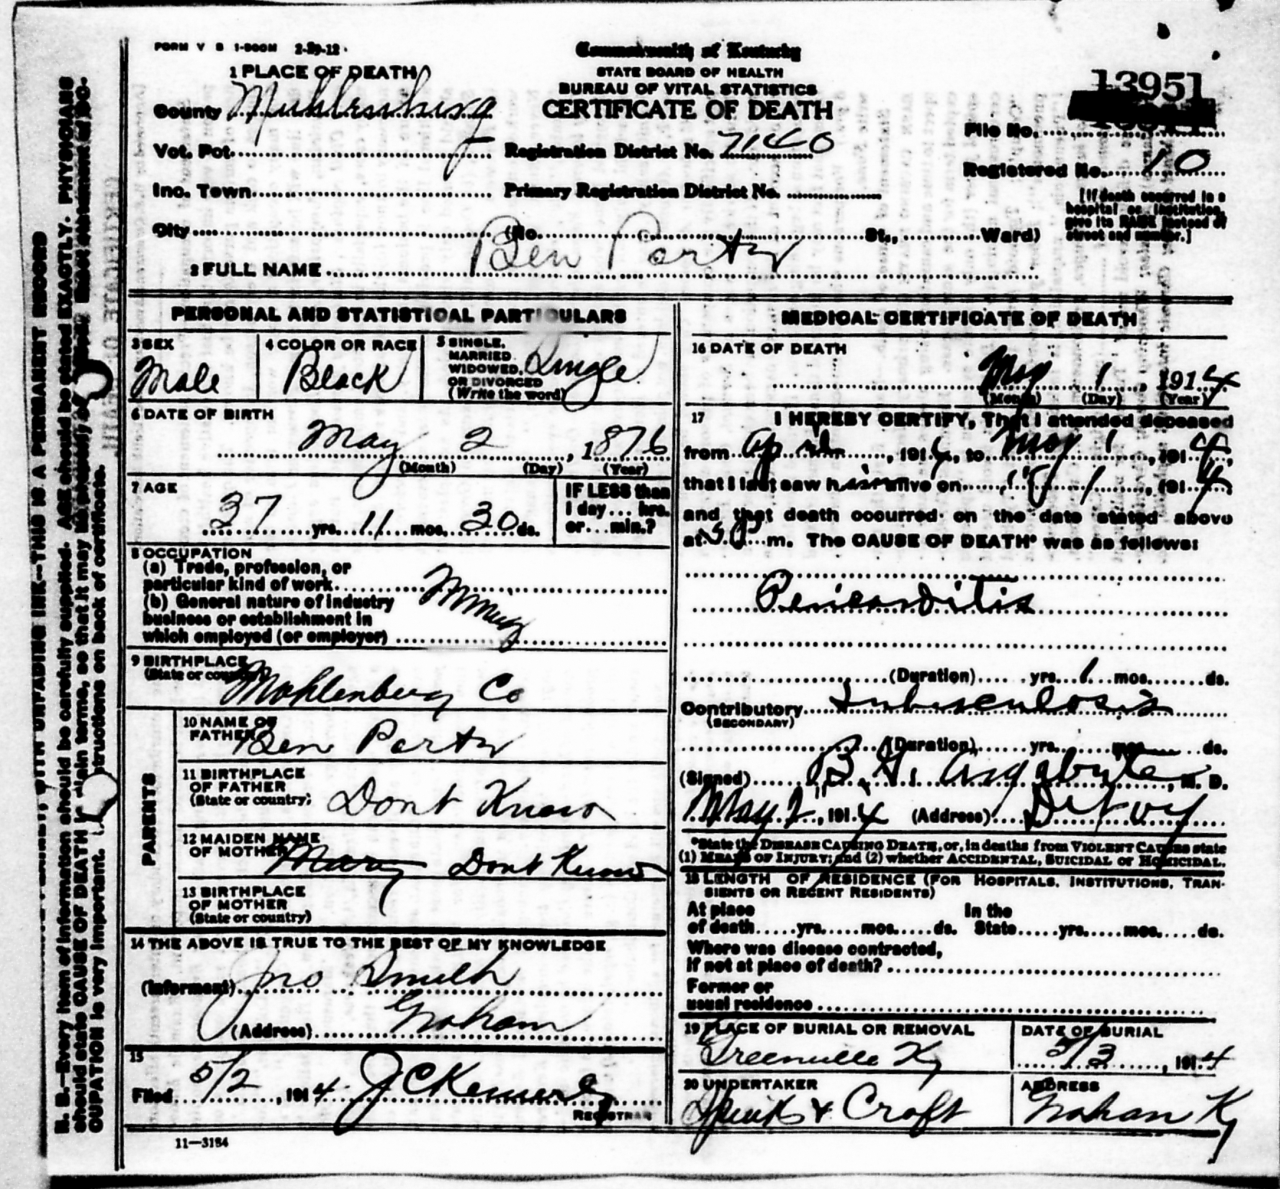 FORM V S 1-500M 2-29-12
Commonwealth of Kentucky
STATE BOARD OF HEALTH
BUREAU OF VITAL STATISTICS
CERTIFICATE OF DEATH
13951
File No.
Registered No. 10
[If death occurred in a hospital or institution, give its NAME instead of street and number.]
1 PLACE OF DEATH
County Muhlenburg
Vot. Pct.
Registration District No. 7140
Inc. Town
Primary Registration District No.
City (No. St., Ward)
2 FULL NAME Ben Porter
PERSONAL AND STATISTICAL PARTICULARS
3 SEX
Male
4 COLOR OR RACE
Black
5 SINGLE, MARRIED, WIDOWED, OR DIVORCED (Write the word)
Single
6 DATE OF BIRTH
May 2, 1876
(Month) (Day) (Year)
7 AGE
37 yrs. 11 mos. 30 ds.
IF LESS than 1 day... hrs. or... min.?
8 OCCUPATION
(a) Trade, profession, or
particular kind of work
(b) General nature of industry
business or establishment in
which employed (or employer)
9 BIRTHPLACE
(State or country)
Mohlenberg Co
PARENTS
10 NAME OF FATHER
Ben Porter
11 BIRTHPLACE OF FATHER
(State or country)
Dont Know
12 MAIDEN NAME OF MOTHER
Mary Dont Know
13 BIRTHPLACE OF MOTHER
(State or country)
14 THE ABOVE IS TRUE TO THE BEST OF MY KNOWLEDGE
(Informant) Jno Smith
(Address) Graham
15
Filed 5/2, 1914
REGISTRAR
11—3184
MEDICAL CERTIFICATE OF DEATH
16 DATE OF DEATH
May 1, 1914
(Month) (Day) (Year)
17 I HEREBY CERTIFY, That I attended deceased
from April, 1914, to May 1, 1914,
that I last saw him alive on 1, 1914,
and that death occurred on the date stated above
at m. The CAUSE OF DEATH* was as follows:
Pericarditis
(Duration) yrs. 1 mos. ds.
Contributory Tuberculosis
(SECONDARY)
(Duration) yrs. mos. ds.
(Signed) B. G. Argabrite, M. D.
May 2, 1914 (Address)
*State the DISEASE CAUSING DEATH, or, in deaths from VIOLENT CAUSES state
(1) MEANS OF INJURY; and (2) whether ACCIDENTAL, SUICIDAL or HOMICIDAL.
18 LENGTH OF RESIDENCE (FOR HOSPITALS, INSTITUTIONS, TRANSIENTS OR RECENT RESIDENTS)
At place of death yrs. mos. ds. In the State yrs. mos. ds.
Where was disease contracted,
If not at place of death?
Former or
usual residence
19 PLACE OF BURIAL OR REMOVAL
Greenville Ky
DATE OF BURIAL
5/3, 1914
20 UNDERTAKER
& Croft
ADDRESS
Graham Ky